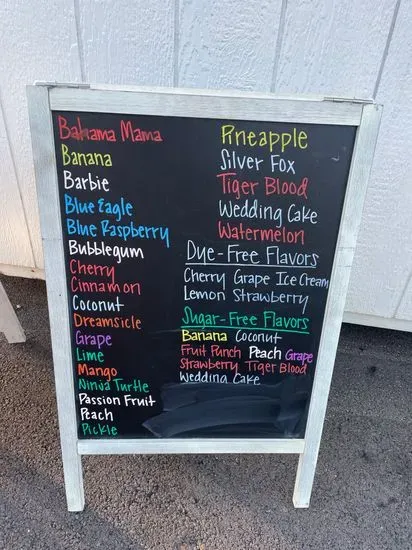 Bahama Mama
Banana
Barbie
Blue Eagle
Blue Raspberry
Bubblegum
Cherry
Cinnamon
Coconut
Dreamsicle
Grape
Lime
Mango
Ninja Turtle
Passion Fruit
Peach
Pickle
Pineapple
Silver Fox
Tiger Blood
Wedding Cake
Watermelon
Dye-Free Flavors
Cherry Grape Ice Cream
Lemon Strawberry
Sugar-Free Flavors
Banana Coconut
Fruit Punch Peach Grape
Strawberry Tiger Blood
Wedding Cake